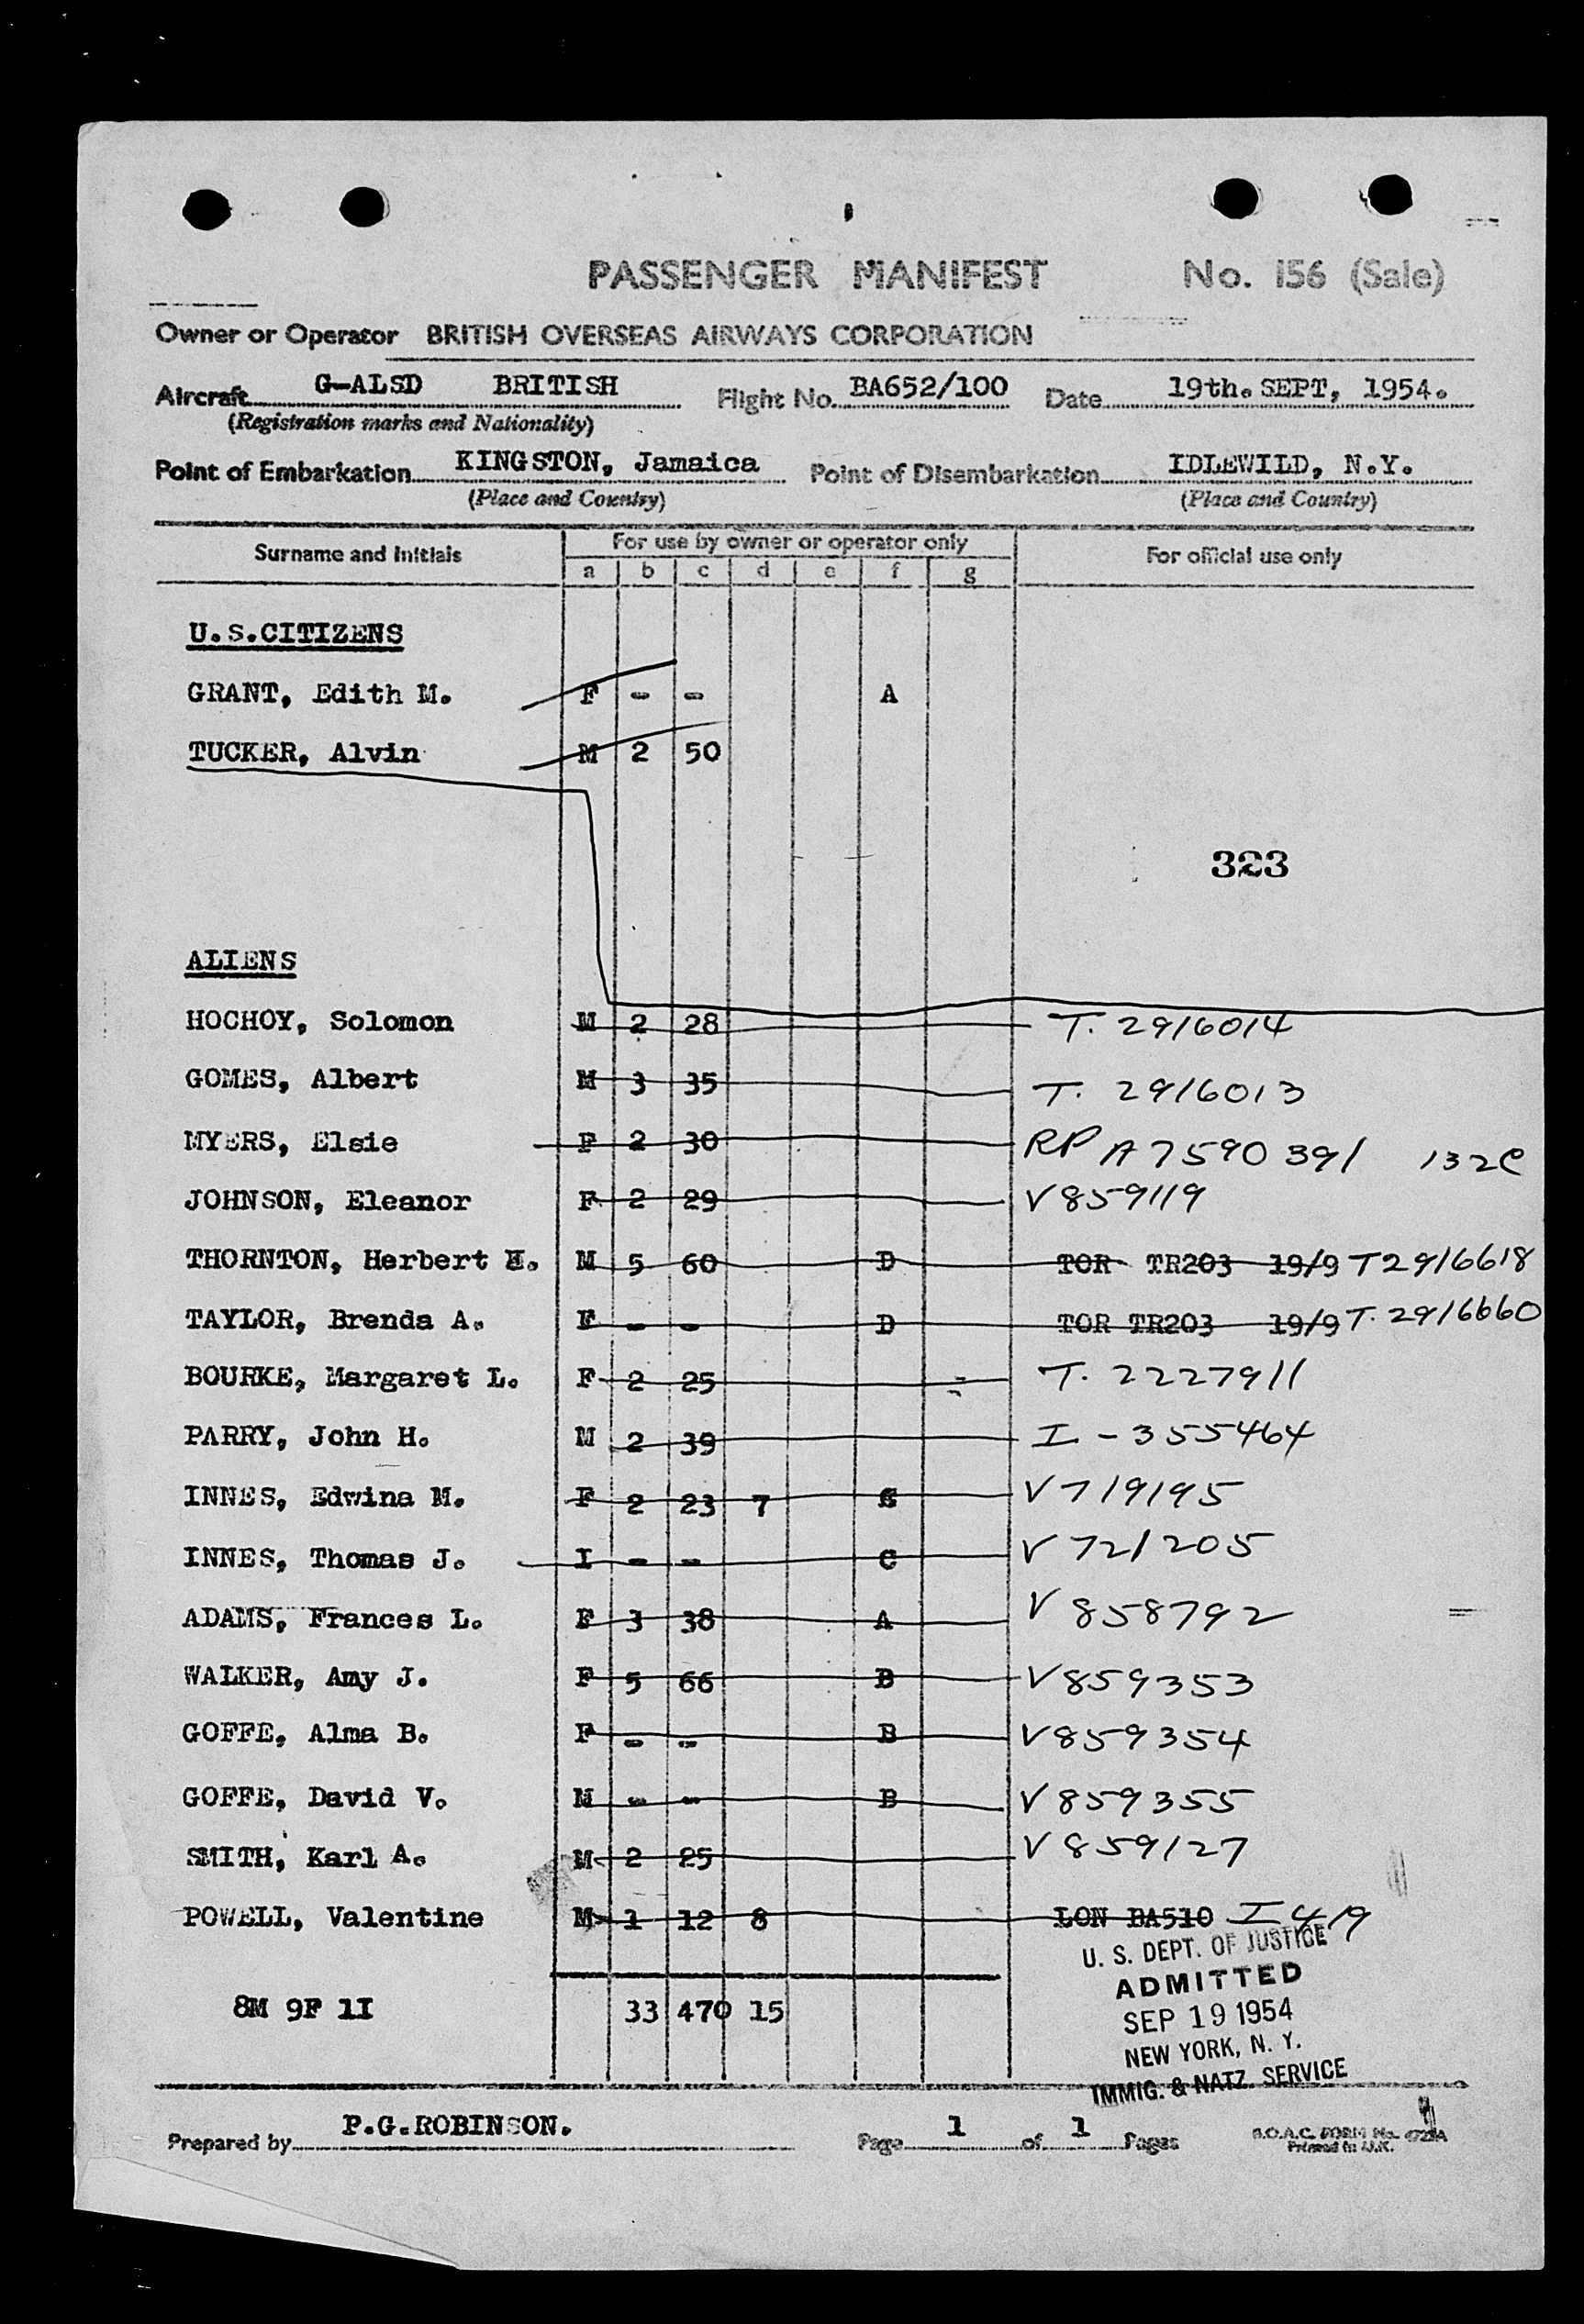 PASSENGER MANIFEST No. 156 (Sale)
Owner or Operator BRITISH OVERSEAS AIRWAYS CORPORATION
Aircraft G-ALSD BRITISH Flight No. BA652/100 Date 19th. SEPT, 1954.
(Registration marks and Nationality)
Point of Embarkation KINGSTON, Jamaica Point of Disembarkation IDLEWILD, N.Y.
(Place and Country) (Place and Country)
Surname and Initials For use by owner or operator only For official use only
a b c d e f g
U.S.CITIZENS
GRANT, Edith M. F - - A
TUCKER, Alvin M 2 50
323
ALIENS
HOCHOY, Solomon M 2 28 T. 2916014
GOMES, Albert M 3 35 T. 2916013
MYERS, Elsie F 2 30 RP A7590391 132C
JOHNSON, Eleanor F 2 29 V859119
THORNTON, Herbert H. M 5 60 D TOR TR203 19/9 T2916618
TAYLOR, Brenda A. F - - D TOR TR203 19/9 T. 2916660
BOURKE, Margaret L. F 2 25 T. 2227911
PARRY, John H. M 2 39 I-355464
INNES, Edwina M. F 2 23 7 C V719195
INNES, Thomas J. I - - C V721205
ADAMS, Frances L. F 3 38 A V858792
WALKER, Amy J. F 5 66 B V859353
GOFFE, Alma B. F - - B V859354
GOFFE, David V. M - - B V859355
SMITH, Karl A. M 2 25 V859127
POWELL, Valentine M 1 12 8 LON BA510 I 419
U. S. DEPT. OF JUSTICE
ADMITTED
8M 9F 1I 33 470 15 SEP 19 1954
NEW YORK, N. Y.
IMMIG. & NATZ. SERVICE
Prepared by P.G.ROBINSON. Page 1 of 1 Pages B.O.A.C. FORM No.
Printed in U.K.